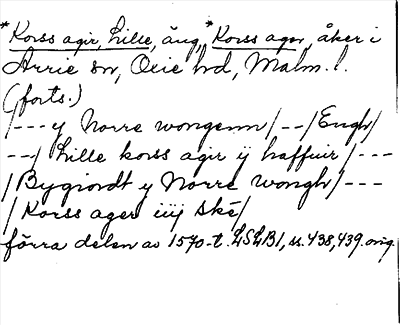 *Korss agir, Lille, äng, *Korss ager, åker i
Arrie sn, Oxie hd, Malm. l.
(forts.)
/--- y Norre wongenn/--/Engh/
--/ Lille korss agir ÿ haffuir/---
/Bygiordt y Norre wongh/---
/Korss ager iiij ske/
förra delen av 1570-t. LSLB1, ss. 438, 439. orig